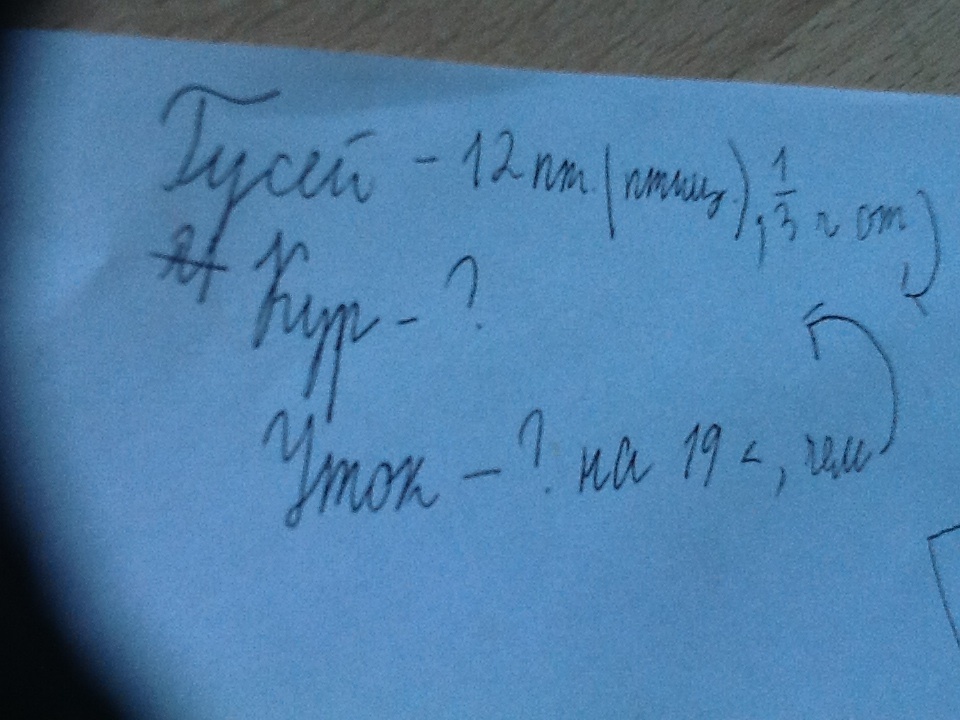 Гусей - 12 пт. (птиц.), 1/3 ч от
Кур - ?
Уток - ? на 19 <, чем